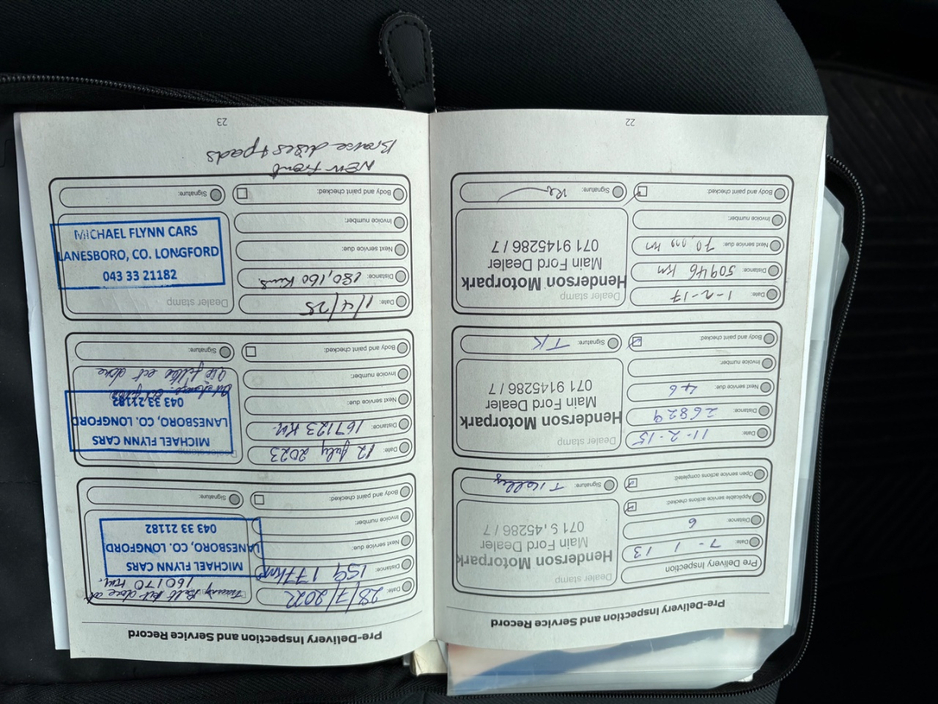 Pre-Delivery Inspection and Service Record
Pre Delivery Inspection
Date: 7-1-13
Distance: 6
Applicable actions service checked:
Open actions service completed:
Dealer stamp
Henderson Motorpark
Main Ford Dealer
Signature:
Date: 11-2-15
Distance: 26829
Next service due: 46
Invoice number
Body and paint checked:
Dealer stamp
Henderson Motorpark
Main Ford Dealer
071 9145286 / 7
Signature: TK
Date: 1-2-17
Distance: 50946 km
Next service due: 70,000 km
Invoice number:
Body and paint checked:
Dealer stamp
Henderson Motorpark
Main Ford Dealer
071 9145286 / 7
Signature:
22
Pre-Delivery Inspection and Service Record
Date: 28/7/2022
Distance: 159 177 km
Next service due:
Invoice number
Body and paint checked:
Timing Belt kit done at
160170 KM.
MICHAEL FLYNN CARS
LANESBORO, CO. LONGFORD
043 33 21182
Signature:
Date: 12 July 2023
Distance: 167123 KM
Next service due:
Invoice number:
Body and paint checked:
MICHAEL FLYNN CARS
LANESBORO, CO. LONGFORD
043 33 21182
Oil filter ect done
Signature:
Date: 1/4/25
Distance: 180,160 Kms
Next service due:
Invoice number:
Body and paint checked:
Dealer stamp
MICHAEL FLYNN CARS
LANESBORO, CO. LONGFORD
043 33 21182
Signature:
New front
Brake discs + pads
23